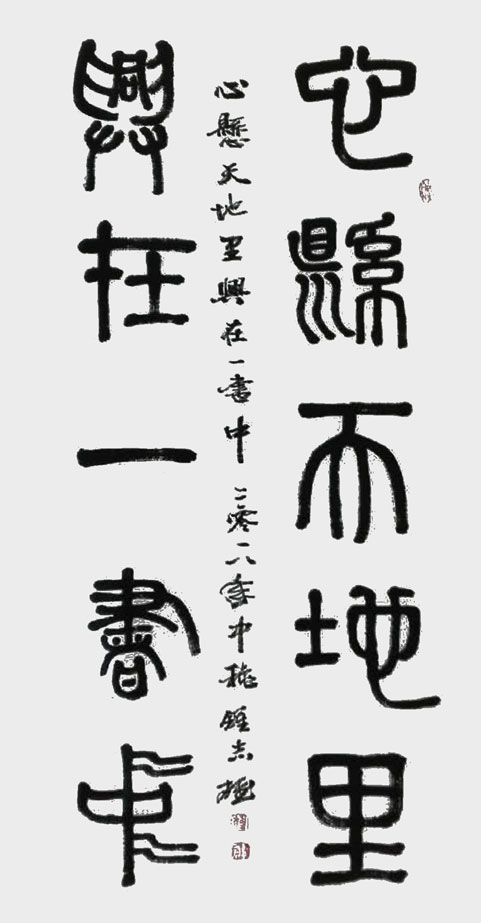 心縣天地里
興在一書中
心懸天地里興在一書中 二零一八年中秋 鍾志